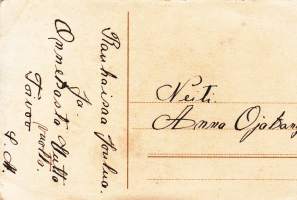 Rauhaisaa Joulua.
Ja
Onnekasta Uutta
vuotta.
Toivoo
S. M.
Neiti.
Anna